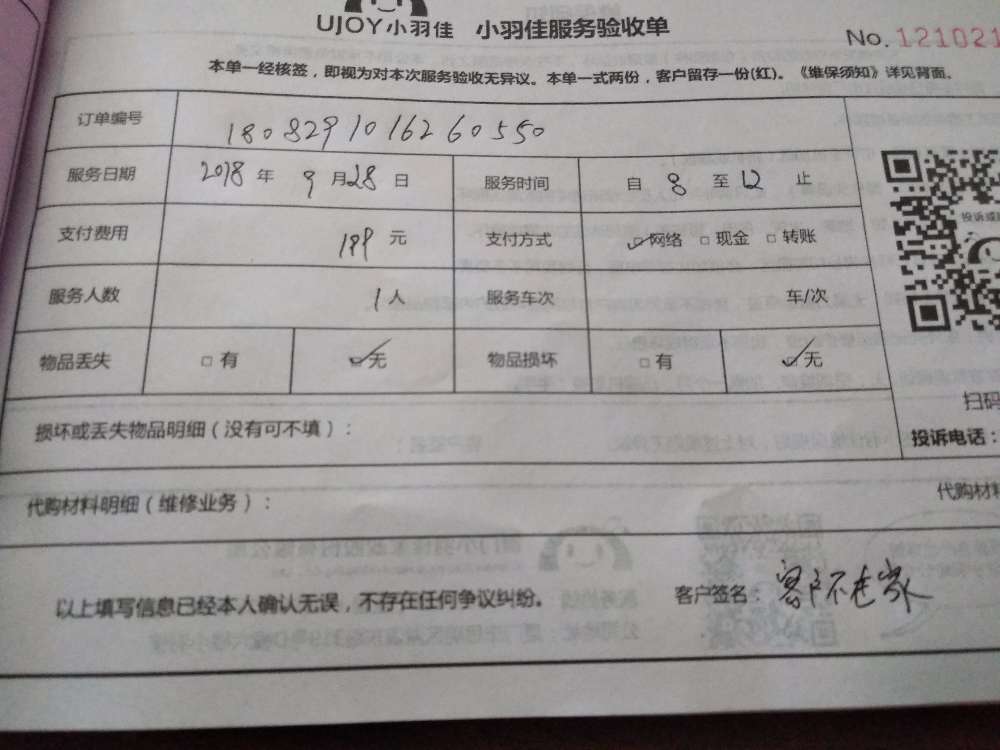 UJOY小羽佳 小羽佳服务验收单
No. 121021
本单一经核签，即视为对本次服务验收无异议。本单一式两份，客户留存一份(红)。《维保须知》详见背面。
订单编号 1808291016260550
服务日期 2018 年 9 月 28 日 服务时间 自 8 至 12 止
支付费用 199 元 支付方式 ☑网络 □现金 □转账
服务人数 1人 服务车次 车/次
物品丢失 □有 ☑无 物品损坏 □有 ☑无
扫码
损坏或丢失物品明细（没有可不填）：
投诉电话：
代购材料明细（维修业务）：
代购材料
以上填写信息已经本人确认无误，不存在任何争议纠纷。
客户签名：客户不在家